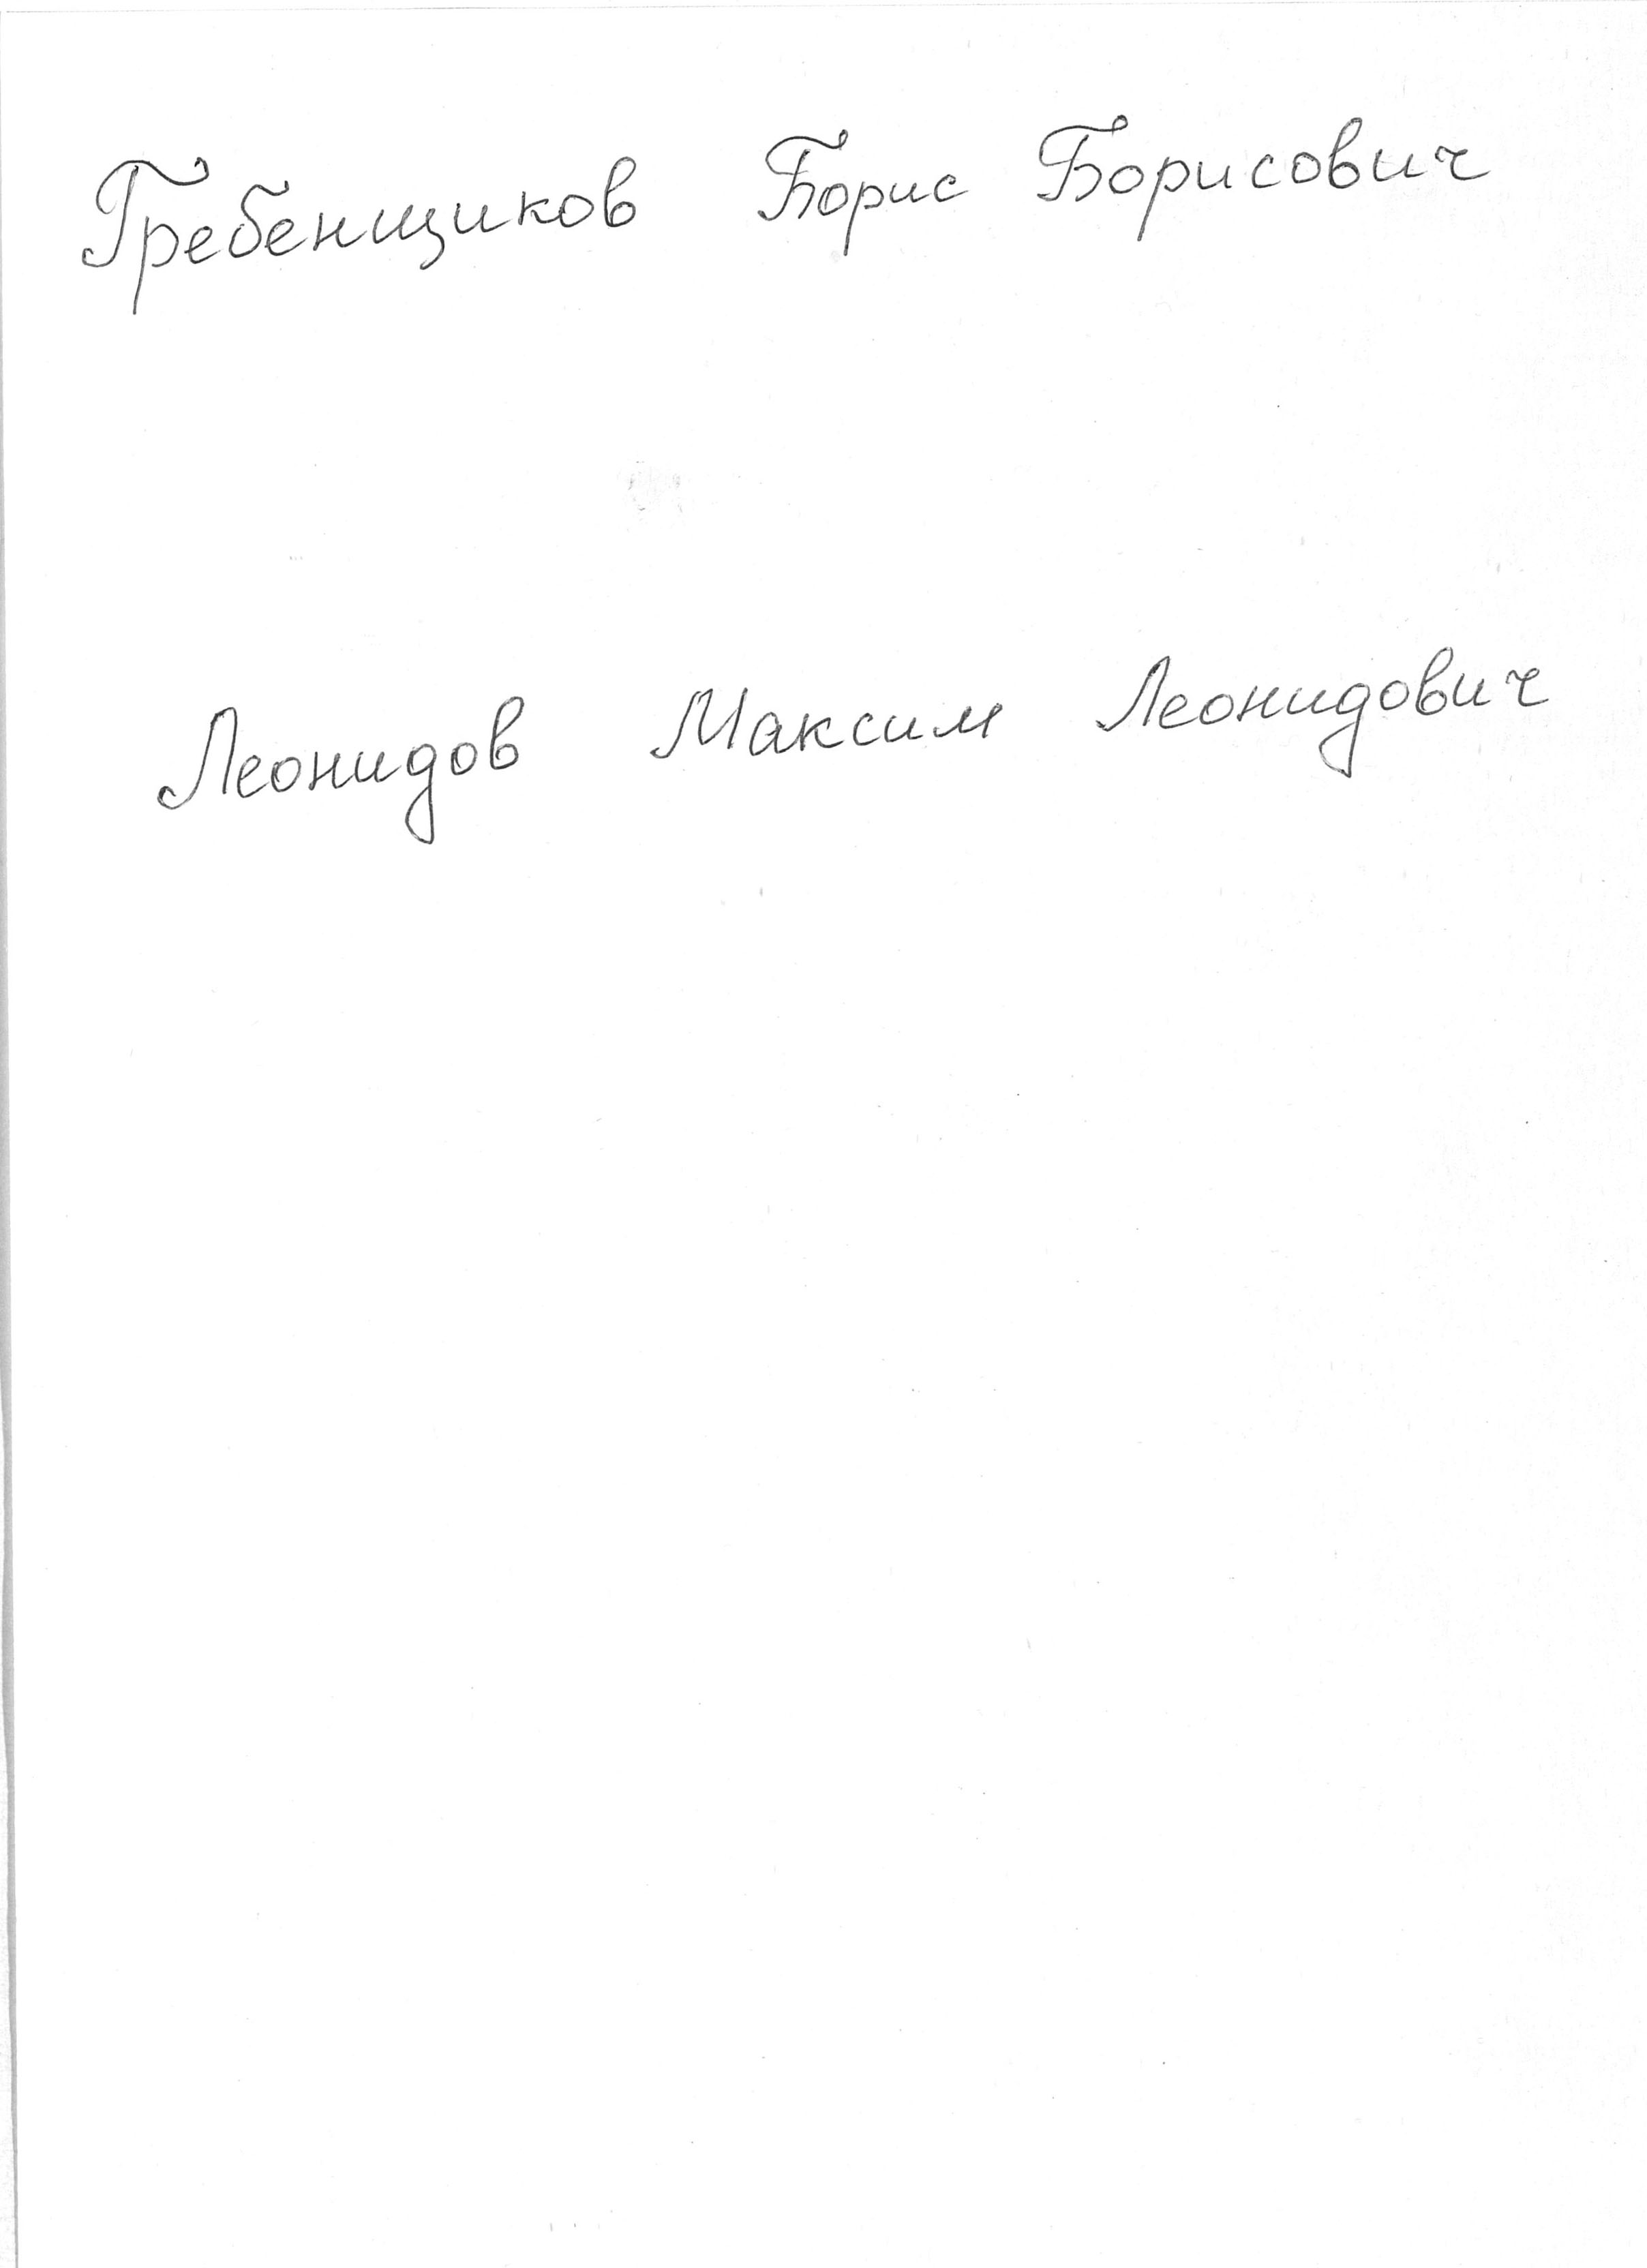 Гребенщиков Борис Борисович
Леонидов Максим Леонидович